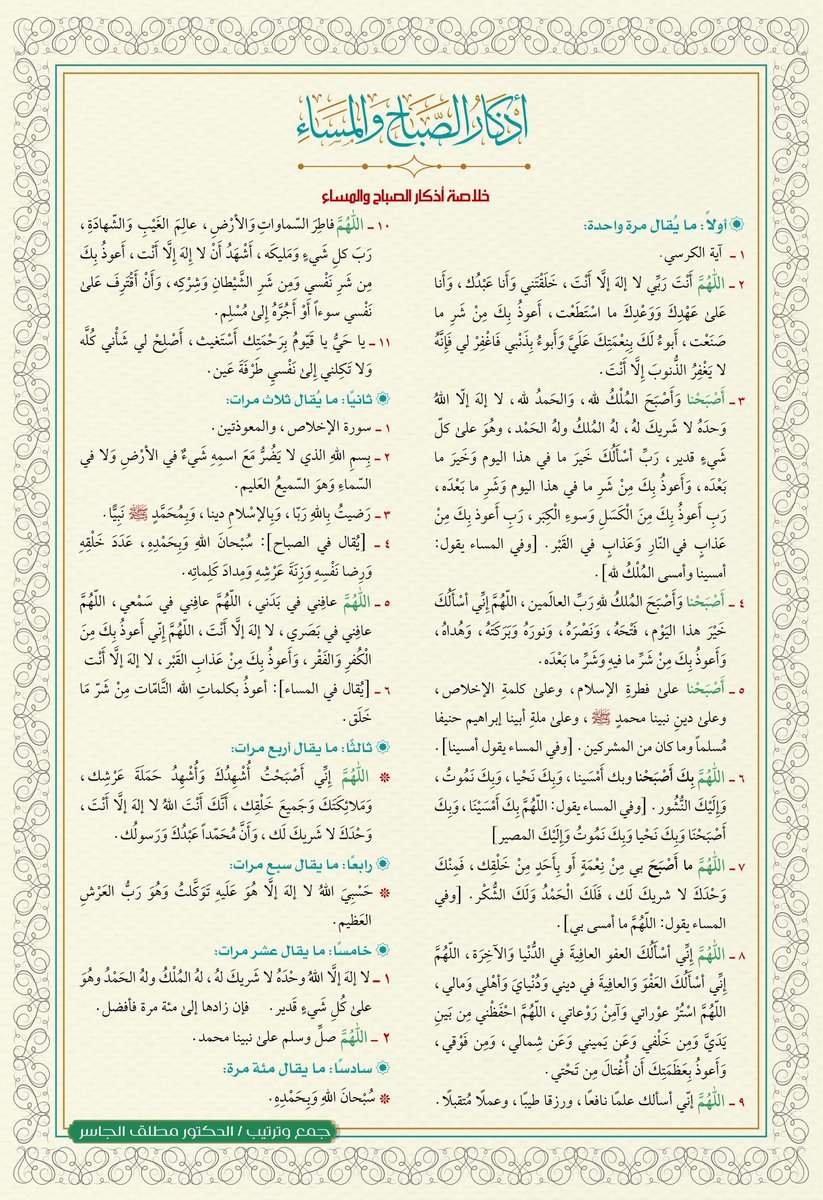 أذكار الصباح والمساء
خلاصة أذكار الصباح والمساء
أولاً: ما يُقال مرة واحدة:
١ ـ آية الكرسي.
٢ ـ اللَّهُمَّ أَنْتَ رَبِّي لا إلهَ إلَّا أَنْتَ، خَلَقْتَني وَأَنا عَبْدُك، وَأَنا
عَلىٰ عَهْدِكَ وَوَعْدِكَ ما اسْتَطَعْت، أَعوذُ بِكَ مِنْ شَرِ ما
صَنَعْت، أَبوءُ لَكَ بِنِعْمَتِكَ عَلَيَّ وَأَبوءُ بِذَنْبي فَاغْفِرْ لي فَإِنَّهُ
لا يَغْفِرُ الذُّنوبَ إلَّا أَنْتَ.
٣ ـ أَصْبَحْنا وَأَصْبَحَ المُلْكُ لله، وَالحَمدُ لله، لا إلهَ إلّا اللهُ
وَحدَهُ لا شَريكَ لهُ، لهُ المُلكُ ولهُ الحَمْد، وهُوَ علىٰ كلّ
شَيءٍ قدير، رَبِّ أسْأَلُكَ خَيرَ ما في هذا اليوم وَخَيرَ ما
بَعْدَه، وَأَعوذُ بِكَ مِنْ شَرِ ما في هذا اليوم وَشَرِ ما بَعْدَه،
رَبِ أَعوذُ بِكَ مِنَ الْكَسَلِ وَسوءِ الْكِبَر، رَبِ أَعوذ بكَ مِنْ
عَذابٍ في النّارِ وَعَذابٍ في القَبْر. [وفي المساء يقول:
أمسينا وأمسى المُلْكُ لله].
٤ ـ أَصْبَحْنا وَأَصْبَحَ المُلكُ للهِ رَبِّ العالَمين، اللهُمَّ إِنِّي أسْأَلُكَ
خَيْرَ هذا اليَوْم، فَتْحَهُ، وَنَصْرَهُ، وَنورَهُ وَبَرَكَتَهُ، وَهُداهُ،
وَأَعوذُ بِكَ مِنْ شَرِّ ما فيهِ وَشَرِّ ما بَعْدَه.
٥ ـ أَصْبَحْنا علىٰ فطرةِ الإسلام، وعلىٰ كلمةِ الإخلاص،
وعلىٰ دينِ نبينا محمدٍ ﷺ، وعلىٰ ملةِ أبينا إبراهيم حنيفا
مُسلماً وما كان من المشركين. [وفي المساء يقول أمسينا].
٦ ـ اللَّهُمَّ بِكَ أَصْبَحْنا وبك أَمْسَينا، وَبِكَ نَحْيا، وَبِكَ نَمُوتُ،
وَإِلَيْكَ النُّشُور. [وفي المساء يقول: اللَّهُمَّ بِكَ أَمْسَيْنَا، وَبِكَ
أَصْبَحْنَا وَبِكَ نَحْيا وَبِكَ نَمُوتُ وَإِلَيْكَ المصير]
٧ ـ اللَّهُمَّ ما أَصْبَحَ بي مِنْ نِعْمَةٍ أَو بِأَحَدٍ مِنْ خَلْقِك، فَمِنْكَ
وَحْدَكَ لا شريكَ لَك، فَلَكَ الْحَمْدُ وَلَكَ الشُّكْر. [وفي
المساء يقول: اللَّهُمَّ ما أمسى بي].
٨ ـ اللَّهُمَّ إِنِّي أسْألُكَ العفو العافِيةَ في الدُّنْيا وَالآخِرَة، اللَّهُمَّ
إِنِّي أسْألُكَ العَفْوَ وَالعافِيةَ في ديني وَدُنْيايَ وَأهْلي وَمالي،
اللَّهُمَّ اسْتُرْ عوْراتي وَآمِنْ رَوْعاتي، اللَّهُمَّ احْفَظْني مِن بَينِ
يَدَيَّ وَمِن خَلْفي وَعَن يَميني وَعَن شِمالي، وَمِن فَوْقي،
وَأَعوذُ بِعَظَمَتِكَ أَن أُغْتالَ مِن تَحْتي.
٩ ـ اللَّهُمَّ إنّي أسألك علمًا نافعًا، ورزقا طيبًا، وعملًا مُتقبلًا.
١٠ ـ اللَّهُمَّ فاطِرَ السّماواتِ وَالأرْضِ، عالِمَ الغَيْبِ وَالشّهادَةِ،
رَبَ كلِ شَيءٍ وَمَليكَه، أَشْهَدُ أَنْ لا إِلهَ إِلَّا أَنْت، أَعوذُ بِكَ
مِن شَرِ نَفْسي وَمِن شَرِ الشَّيْطانِ وَشِرْكِه، وَأَنْ أَقْتَرِفَ عَلىٰ
نَفْسي سوءاً أَوْ أَجُرَّهُ إِلىٰ مُسْلِم.
١١ ـ يا حَيُّ يا قَيّومُ بِرَحْمَتِك أَسْتَغيث، أَصْلِحْ لي شَأْني كُلَّه
وَلا تَكِلني إِلىٰ نَفْسي طَرْفَةَ عَين.
ثانيًا: ما يُقال ثلاث مرات:
١ ـ سورة الإخلاص، والمعوذتين.
٢ ـ بِسمِ اللهِ الذي لا يَضُرُّ مَعَ اسمِهِ شَيءٌ في الأرْضِ وَلا في
السّماءِ وَهوَ السّميعُ العَليم.
٣ ـ رَضيتُ بِاللهِ رَبّا، وَبِالإسْلامِ دينا، وَبِمُحَمَّدٍ ﷺ نَبِيًّا.
٤ ـ [يُقال في الصباح]: سُبْحانَ اللهِ وَبِحَمْدِه، عَدَدَ خَلْقِهِ
وَرِضا نَفْسِهِ وَزِنَةَ عَرْشِهِ وَمِدادَ كَلِماتِه.
٥ ـ اللَّهُمَّ عافِني في بَدَني، اللَّهُمَّ عافِني في سَمْعي، اللَّهُمَّ
عافِني في بَصَري، لا إلهَ إلَّا أَنْتَ، اللَّهُمَّ إِنّي أَعوذُ بِكَ مِنَ
الْكُفرِ وَالفَقْر، وَأَعوذُ بِكَ مِنْ عَذابِ القَبْر، لا إلهَ إلَّا أَنْت
٦ ـ [يُقال في المساء]: أعوذُ بكلماتِ الله التَّامّات مِنْ شَرّ مَا
خَلَق.
ثالثًا: ما يقال أربع مرات:
اللَّهُمَّ إِنِّي أَصْبَحْتُ أُشْهِدُكَ وَأُشْهِدُ حَمَلَةَ عَرْشِك،
وَمَلائِكَتَكَ وَجَميعَ خَلْقِك، أَنَّكَ أَنْتَ اللهُ لا إلهَ إلَّا أَنْتَ،
وَحْدَكَ لا شَريكَ لَك، وَأَنَّ مُحَمّداً عَبْدُكَ وَرَسولُك.
رابعًا: ما يقال سبع مرات:
حَسْبِيَ اللهُ لا إلهَ إلَّا هُوَ عَلَيهِ تَوَكَّلتُ وَهُوَ رَبُّ العَرْشِ
العَظيم.
خامسًا: ما يقال عشر مرات:
١ ـ لا إلهَ إلَّا اللهُ وحْدَهُ لا شَريكَ لهُ، لهُ المُلْكُ ولهُ الحَمْدُ وهُوَ
علىٰ كُلِ شَيءٍ قَدير. فإن زادها إلىٰ مئة مرة فأفضل.
٢ ـ اللَّهُمَّ صلِّ وسلم على نبينا محمد.
سادسًا: ما يقال مئة مرة:
سُبْحانَ اللهِ وَبِحَمْدِهِ.
جمع وترتيب / الدكتور مطلق الجاسر